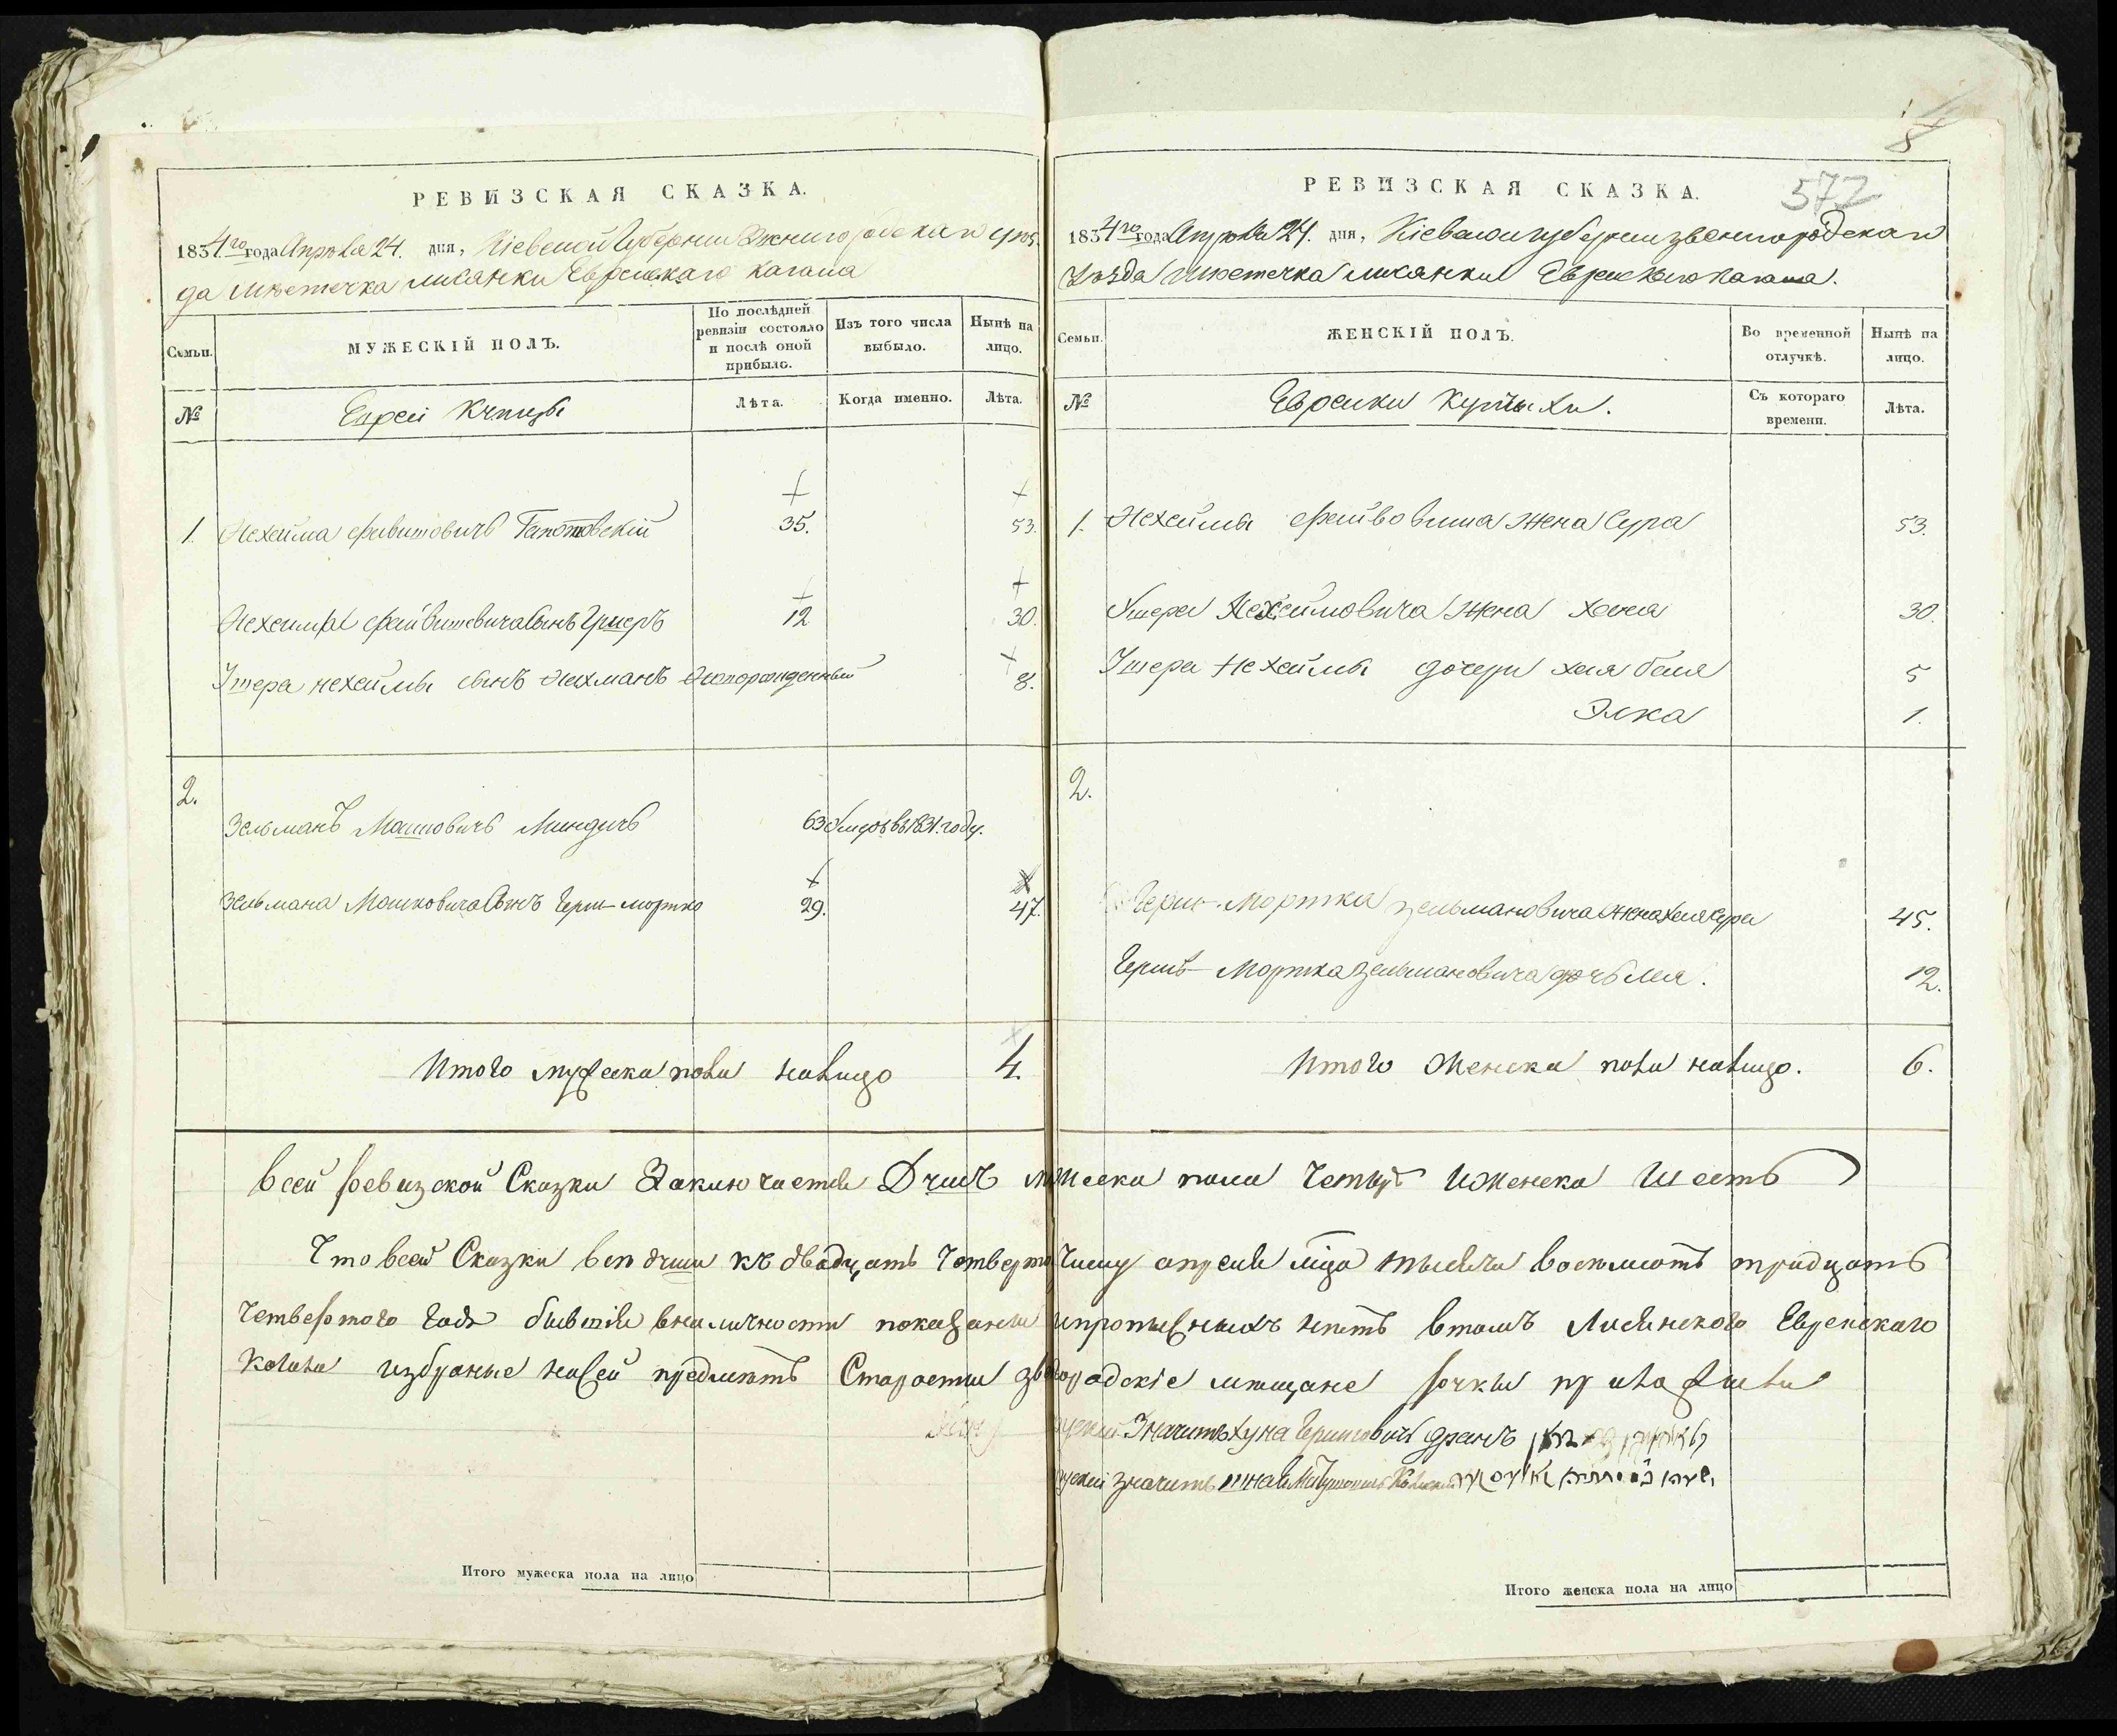 РЕВИЗСКАЯ СКАЗКА.
1834го года Апреля 24. дня, Кіевской Губерніи Звенигородскаго уѣз
да Мѣстечка лисянки Еврейскаго кагала
Семьи.
МУЖЕСКІЙ ПОЛЪ.
По послѣдней ревизіи состояло и послѣ оной прибыло.
Изъ того числа выбыло.
Нынѣ на лицо.
№
Евреи Купцы
Лѣта.
Когда именно.
Лѣта.
1. Нехейма Гапоновскій 35. 53.
Нехеймы сынъ Ушеръ 12 30.
Ушера нехеймы сынъ Нахманъ новорожденный 8.
2.
Зельманъ Мошковичъ Миндичъ 63 Умеръ въ 1831. году.
Зельмана Мошковича Сынъ Герш-мортко 29. 47.
Итого мужеска пола налицо 4.
8
572
РЕВИЗСКАЯ СКАЗКА.
1834го года Апреля 24. дня, Кіевской губерніи звенигородскаго
Уѣзда Мѣстечка лисянки Еврейскаго Кагала.
Семьи.
ЖЕНСКІЙ ПОЛЪ.
Во временной отлучкѣ.
Нынѣ на лицо.
№
Еврейки Купчихи.
Съ котораго времени.
Лѣта.
1. Нехеймы жена Сура 53.
Ушера Нехеймовича жена Хана 30.
Ушера Нехеймы дочери хая бейла 5
Элка 1.
2.
Герш-Мортка зельмановича жена хаясура 45.
Герш-Мортка зельмановича дочь Лея. 12.
Итого Женска пола налицо. 6.
всей ревизской Сказки Заключается Душъ мужеска пола Четыре и женска Шесть
Что всей Сказки всѣ души къ двадцать Четвертому Числу апреля мца тысяча восемьсотъ тридцать
Четвертого Года бывшія вналичности показаны ипрописныхъ нетъ втомъ Лисянского Еврейскаго
Кагала избраные насей предметъ Старосты мещане ручки приложили
Значитъ Хуна Гершковичъ
значитъ
Итого мужеска пола на лицо
Итого женска пола на лицо